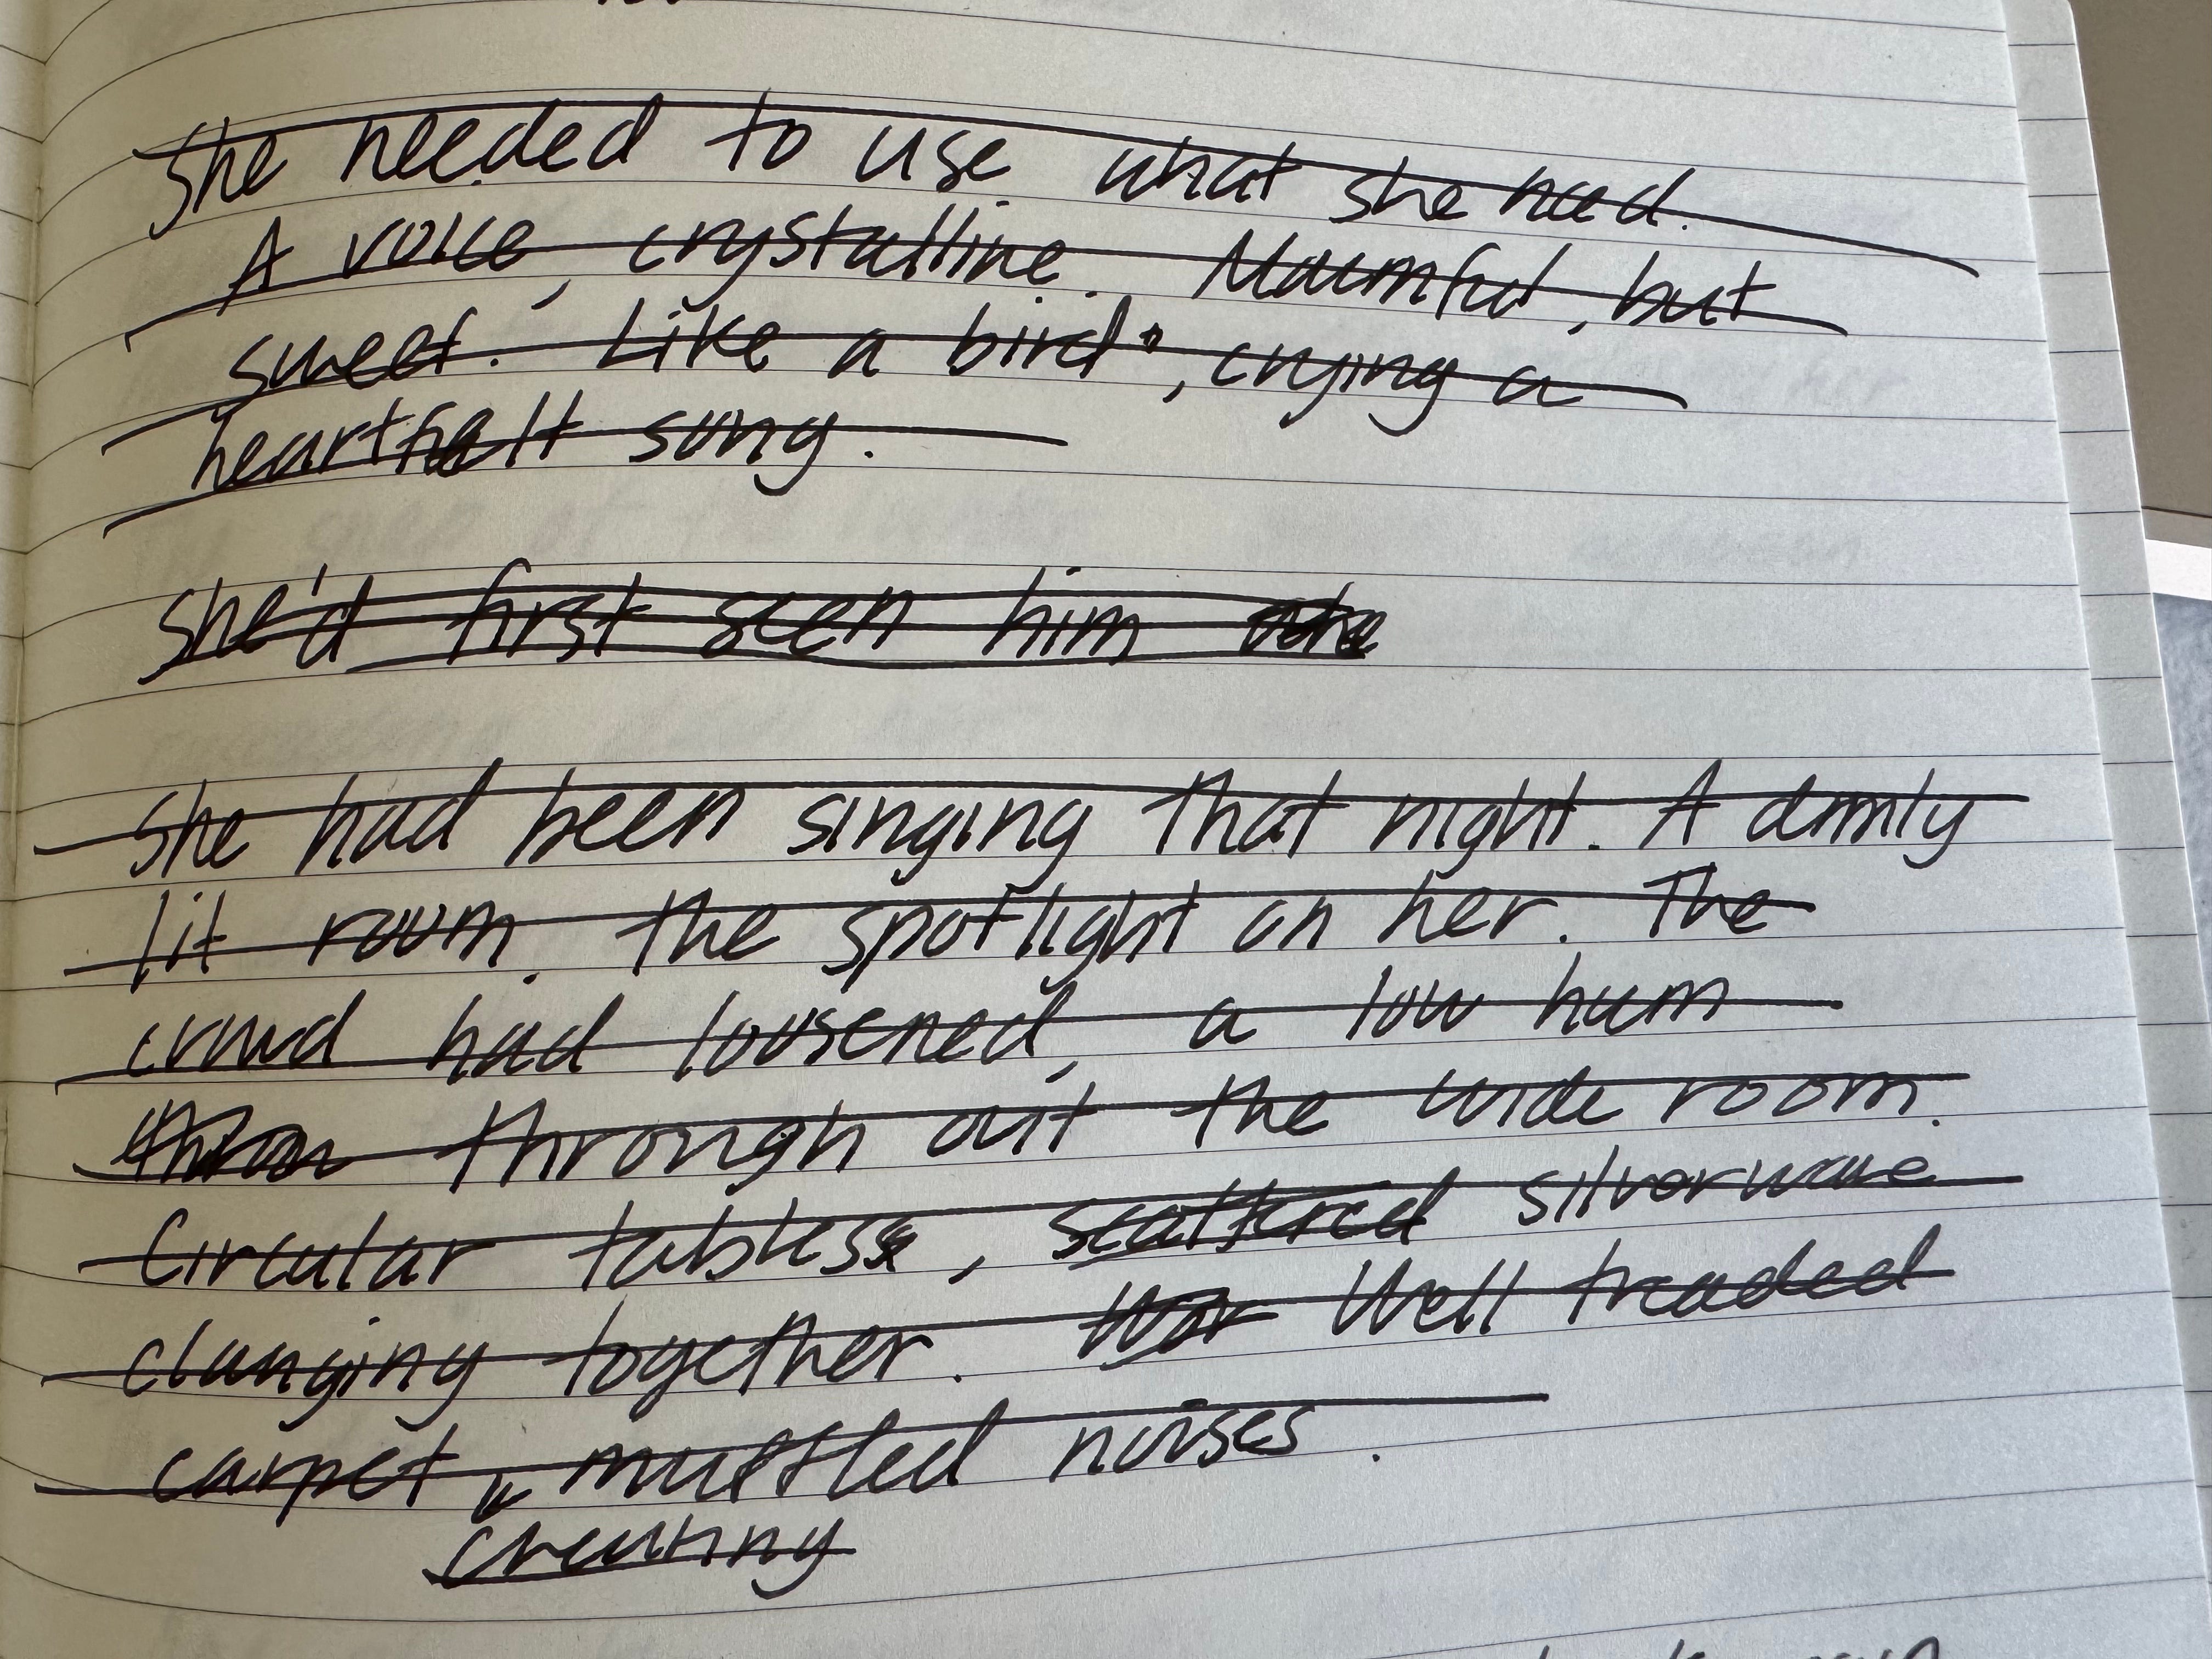 She needed to use what she had.
A voice, crystalline. Mournful, but
sweet. Like a bird, crying a
heartfelt song.
She'd first seen him
She had been singing that night. A dimly
lit room. The spotlight on her. The
crowd had loosened, a low hum
through out the wide room.
Circular tables, scattered silverware
clanging together. Wor Well treaded
carpet, muffled noises.
creating